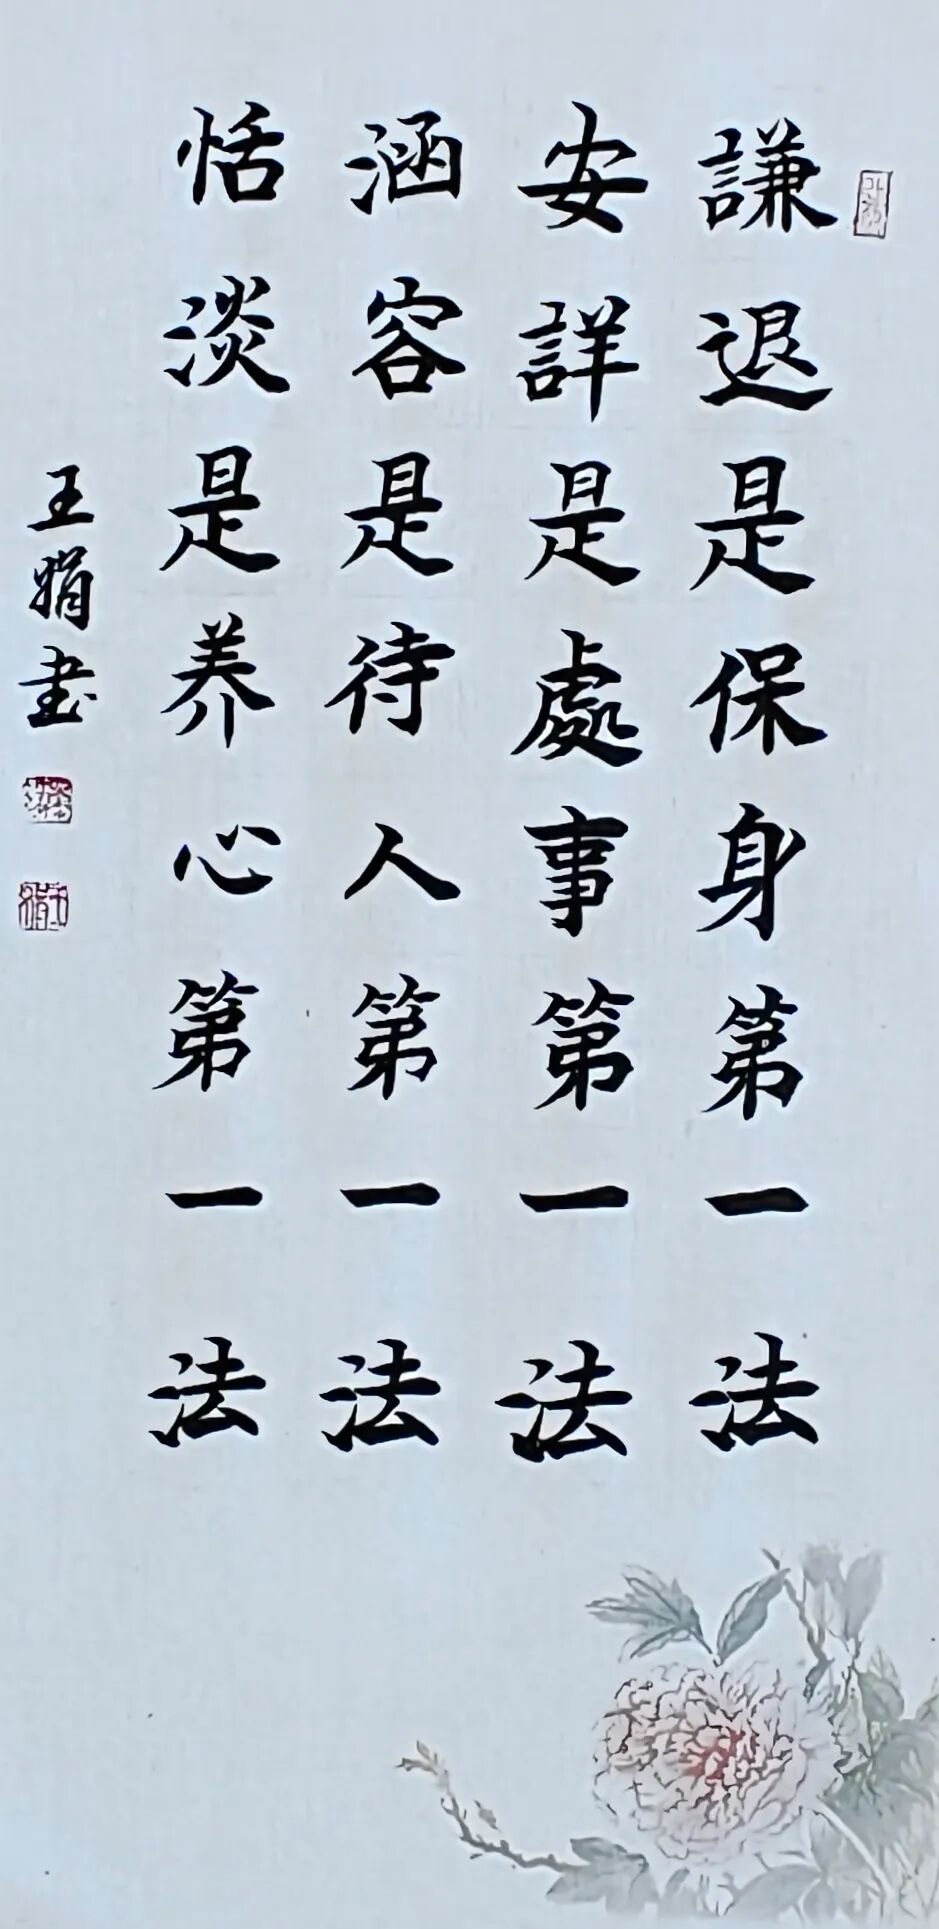 謙退是保身第一法
安詳是處事第一法
涵容是待人第一法
恬淡是养心第一法
王娟书